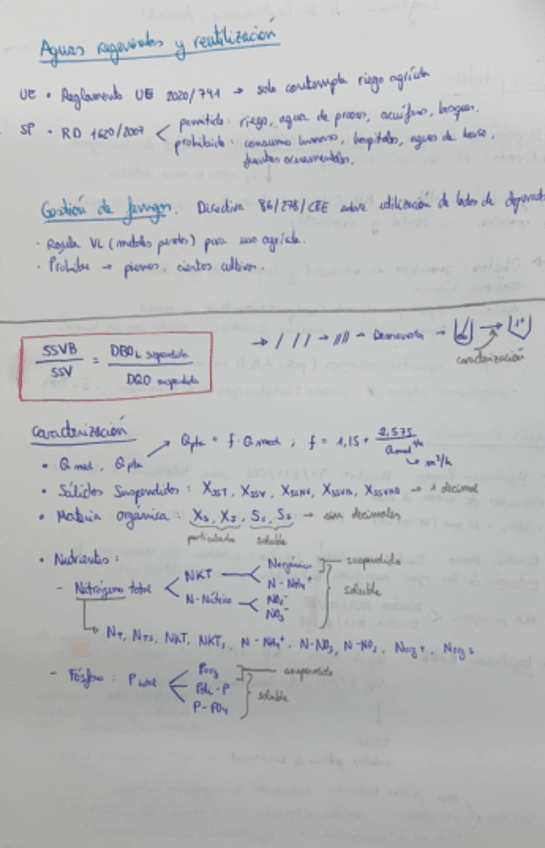 Aguas regeneradas y reutilización
UE • Reglamento UE 2020/741 → solo contempla riego agrícola
SP • RD 1620/2007 < permitido: riego, agua de proceso, acuífero, bosques.
prohibido: consumo humano, hospitales, aguas de baño,
fuentes ornamentales.
Gestión de fangos. Directiva 86/278/CEE sobre utilización de lodos de
· Regula VL (metales pesados) para uso agrícola.
· Prohíbe → ciertos cultivos.
SSVB / SSV = DBO_L suspendida / DQO suspendida
→ / / / → /// → → →
caracterización
Caracterización
• Q med, Q pta → Q pta = f · Q med ; f = 1,15 + 2,575 / Q med^1/4
→ m³/h
• Sólidos Suspendidos: X_SST, X_SSV, X_SSNV, X_SSVB, X_SSVNB → 1 decimal
• Materia orgánica: X_S, X_I, S_S, S_I → sin decimales
particulada soluble
• Nutrientes:
- Nitrógeno total < NKT < Norgánico → suspendido
N-NH4+
N-Nítrico < NO2-
NO3-
soluble
→ N_T, N_TS, NKT, NKT_S, N-NH4+, N-NO3, N-NO2, Norg T, Norg S
- Fósforo: P total < Porg → suspendido
Poli-P
P-PO4
soluble